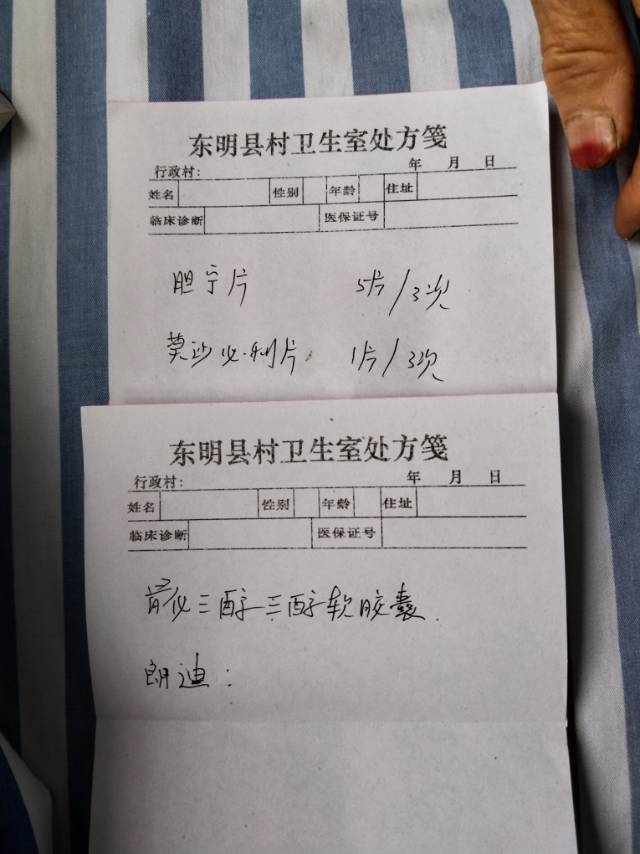 东明县村卫生室处方笺
行政村: 年 月 日
姓名 性别 年龄 住址
临床诊断 医保证号
胆宁片 5片/3次
莫沙必利片 1片/3次
东明县村卫生室处方笺
行政村: 年 月 日
姓名 性别 年龄 住址
临床诊断 医保证号
三醇三醇软胶囊.
朗迪: